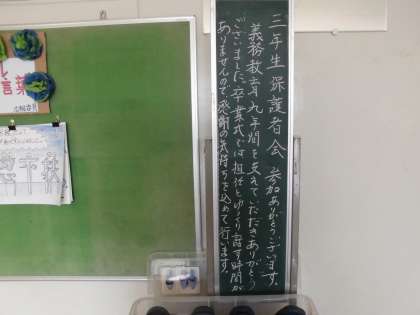 三年生保護者会 参加ありがとうございます。
義務教育九年間を支えていただきありがとう
ございました。卒業式では担任とゆっくり話す時間が
ありませんので、感謝の気持ちを込めて行います。
言葉